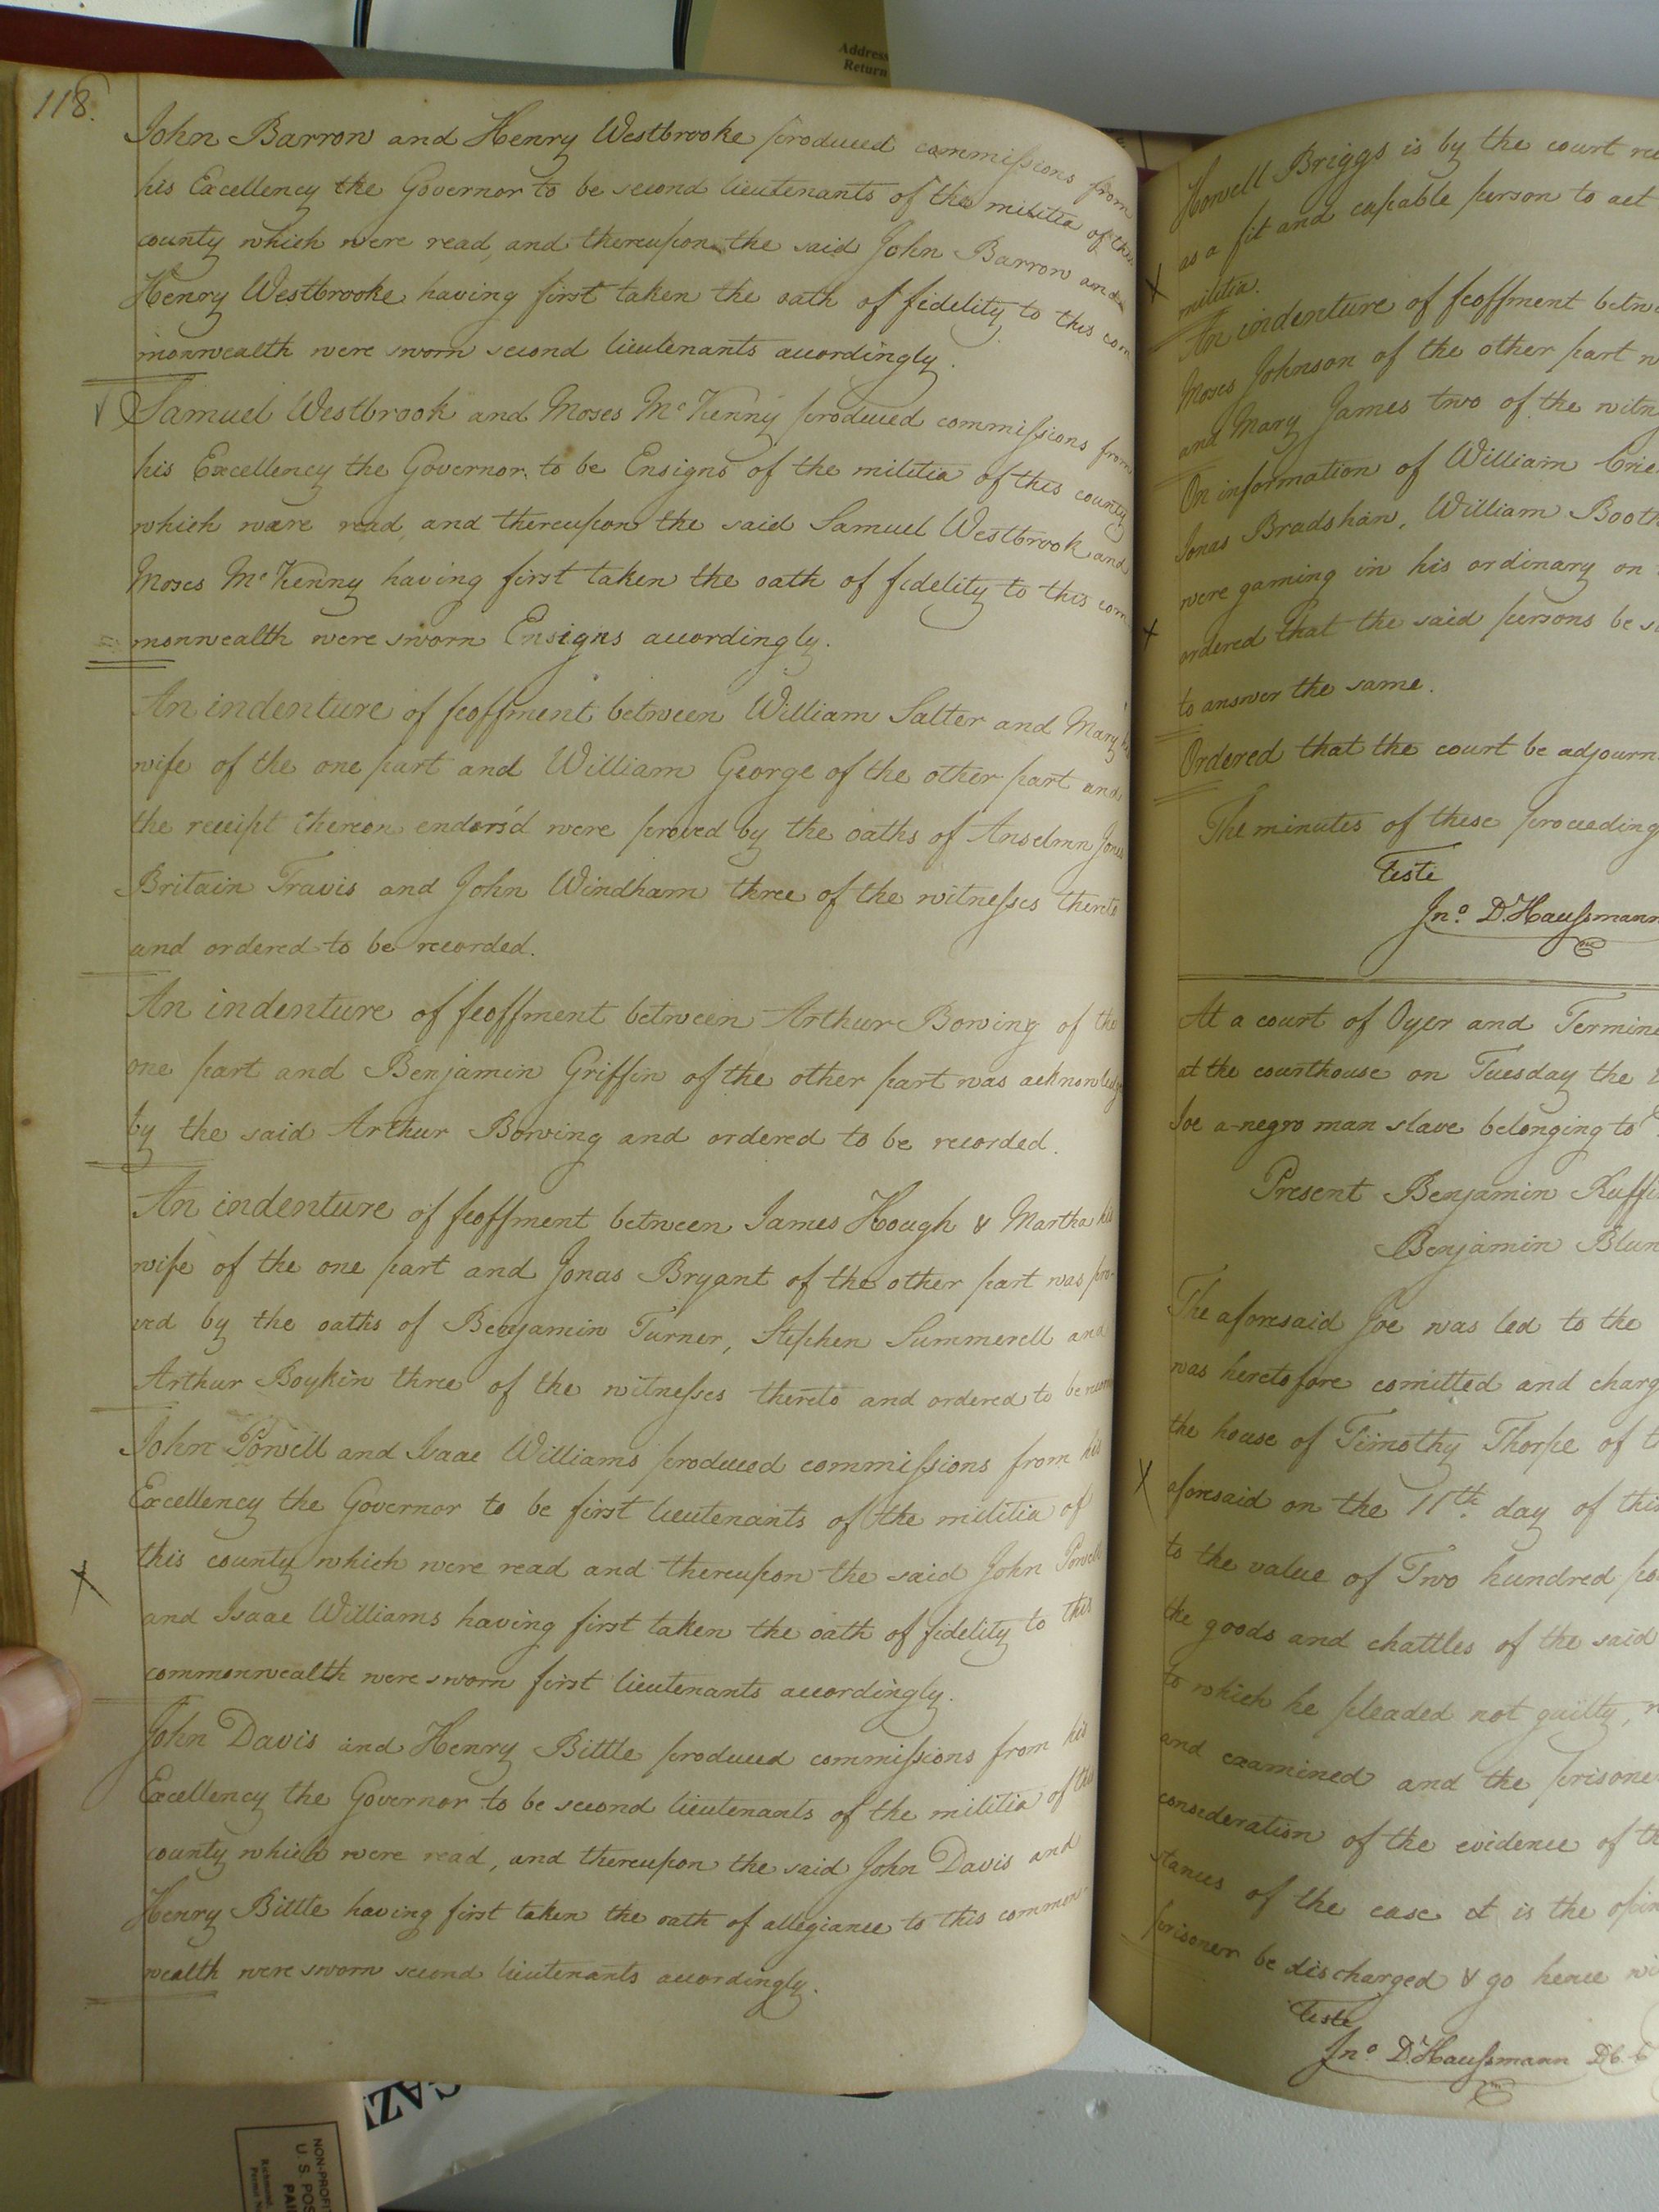 Address
Return
118.
John Barron and Henry Westbrooke produced commissions from
his Excellency the Governor to be second lieutenants of the militia of this
county which were read, and thereupon the said John Barron and
Henry Westbrooke having first taken the oath of fidelity to this com
monwealth were sworn second lieutenants accordingly.
Samuel Westbrook and Moses McKenny produced commissions from
his Excellency the Governor to be Ensigns of the militia of this county
which were read, and thereupon the said Samuel Westbrook and
Moses McKenny having first taken the oath of fidelity to this com
monwealth were sworn Ensigns accordingly.
An indenture of feoffment between William Salter and Mary his
wife of the one part and William George of the other part and
the receipt thereon endors'd were proved by the oaths of Anselmn Jones
Britain Travis and John Windham three of the witnesses thereto
and ordered to be recorded.
An indenture of feoffment between Arthur Bowing of the
one part and Benjamin Griffin of the other part was acknowledg
by the said Arthur Bowing and ordered to be recorded.
An indenture of feoffment between James Hough & Martha his
wife of the one part and Jonas Bryant of the other part was pro-
ved by the oaths of Benjamin Turner, Stephen Summerell and
Arthur Boykin three of the witnesses thereto and ordered to be
John Powell and Isaac Williams produced commissions from his
Excellency the Governor to be first lieutenants of the militia of
this county which were read and thereupon the said John Powell
and Isaac Williams having first taken the oath of fidelity to this
commonwealth were sworn first lieutenants accordingly.
John Davis and Henry Bittle produced commissions from his
Excellency the Governor to be second lieutenants of the militia of this
county which were read, and thereupon the said John Davis and
Henry Bittle having first taken the oath of allegiance to this common-
wealth were sworn second lieutenants accordingly.
Howell Briggs is by the court
as a fit and capable person to act
militia.
An indenture of feoffment
Moses Johnson of the other part
and Mary James two of the
On information of William
Jonas Bradshaw, William Booth
were gaming in his ordinary on
ordered that the said persons be
to answer the same.
Ordered that the court be adjourn
The minutes of these proceeding
Teste
Jno. D. Haussmann
At a court of Oyer and Termine
at the courthouse on Tuesday the
Joe a negro man slave belonging to
Present Benjamin Ruffi
Benjamin Blun
The aforesaid Joe was led to the
was heretofore comitted and charg
the house of Timothy Thorpe of
aforesaid on the 11th. day of this
to the value of Two hundred po
the goods and chattles of the said
to which he pleaded not guilty,
and examined and the prisone
consederation of the evidence of th
stances of the case it is the opin
prisoner be discharged & go hence
Teste
Jno. D. Haussmann D C. C
GAZ
NON-PROFIT
U. S. POS
PAI
Richmond
Permit N